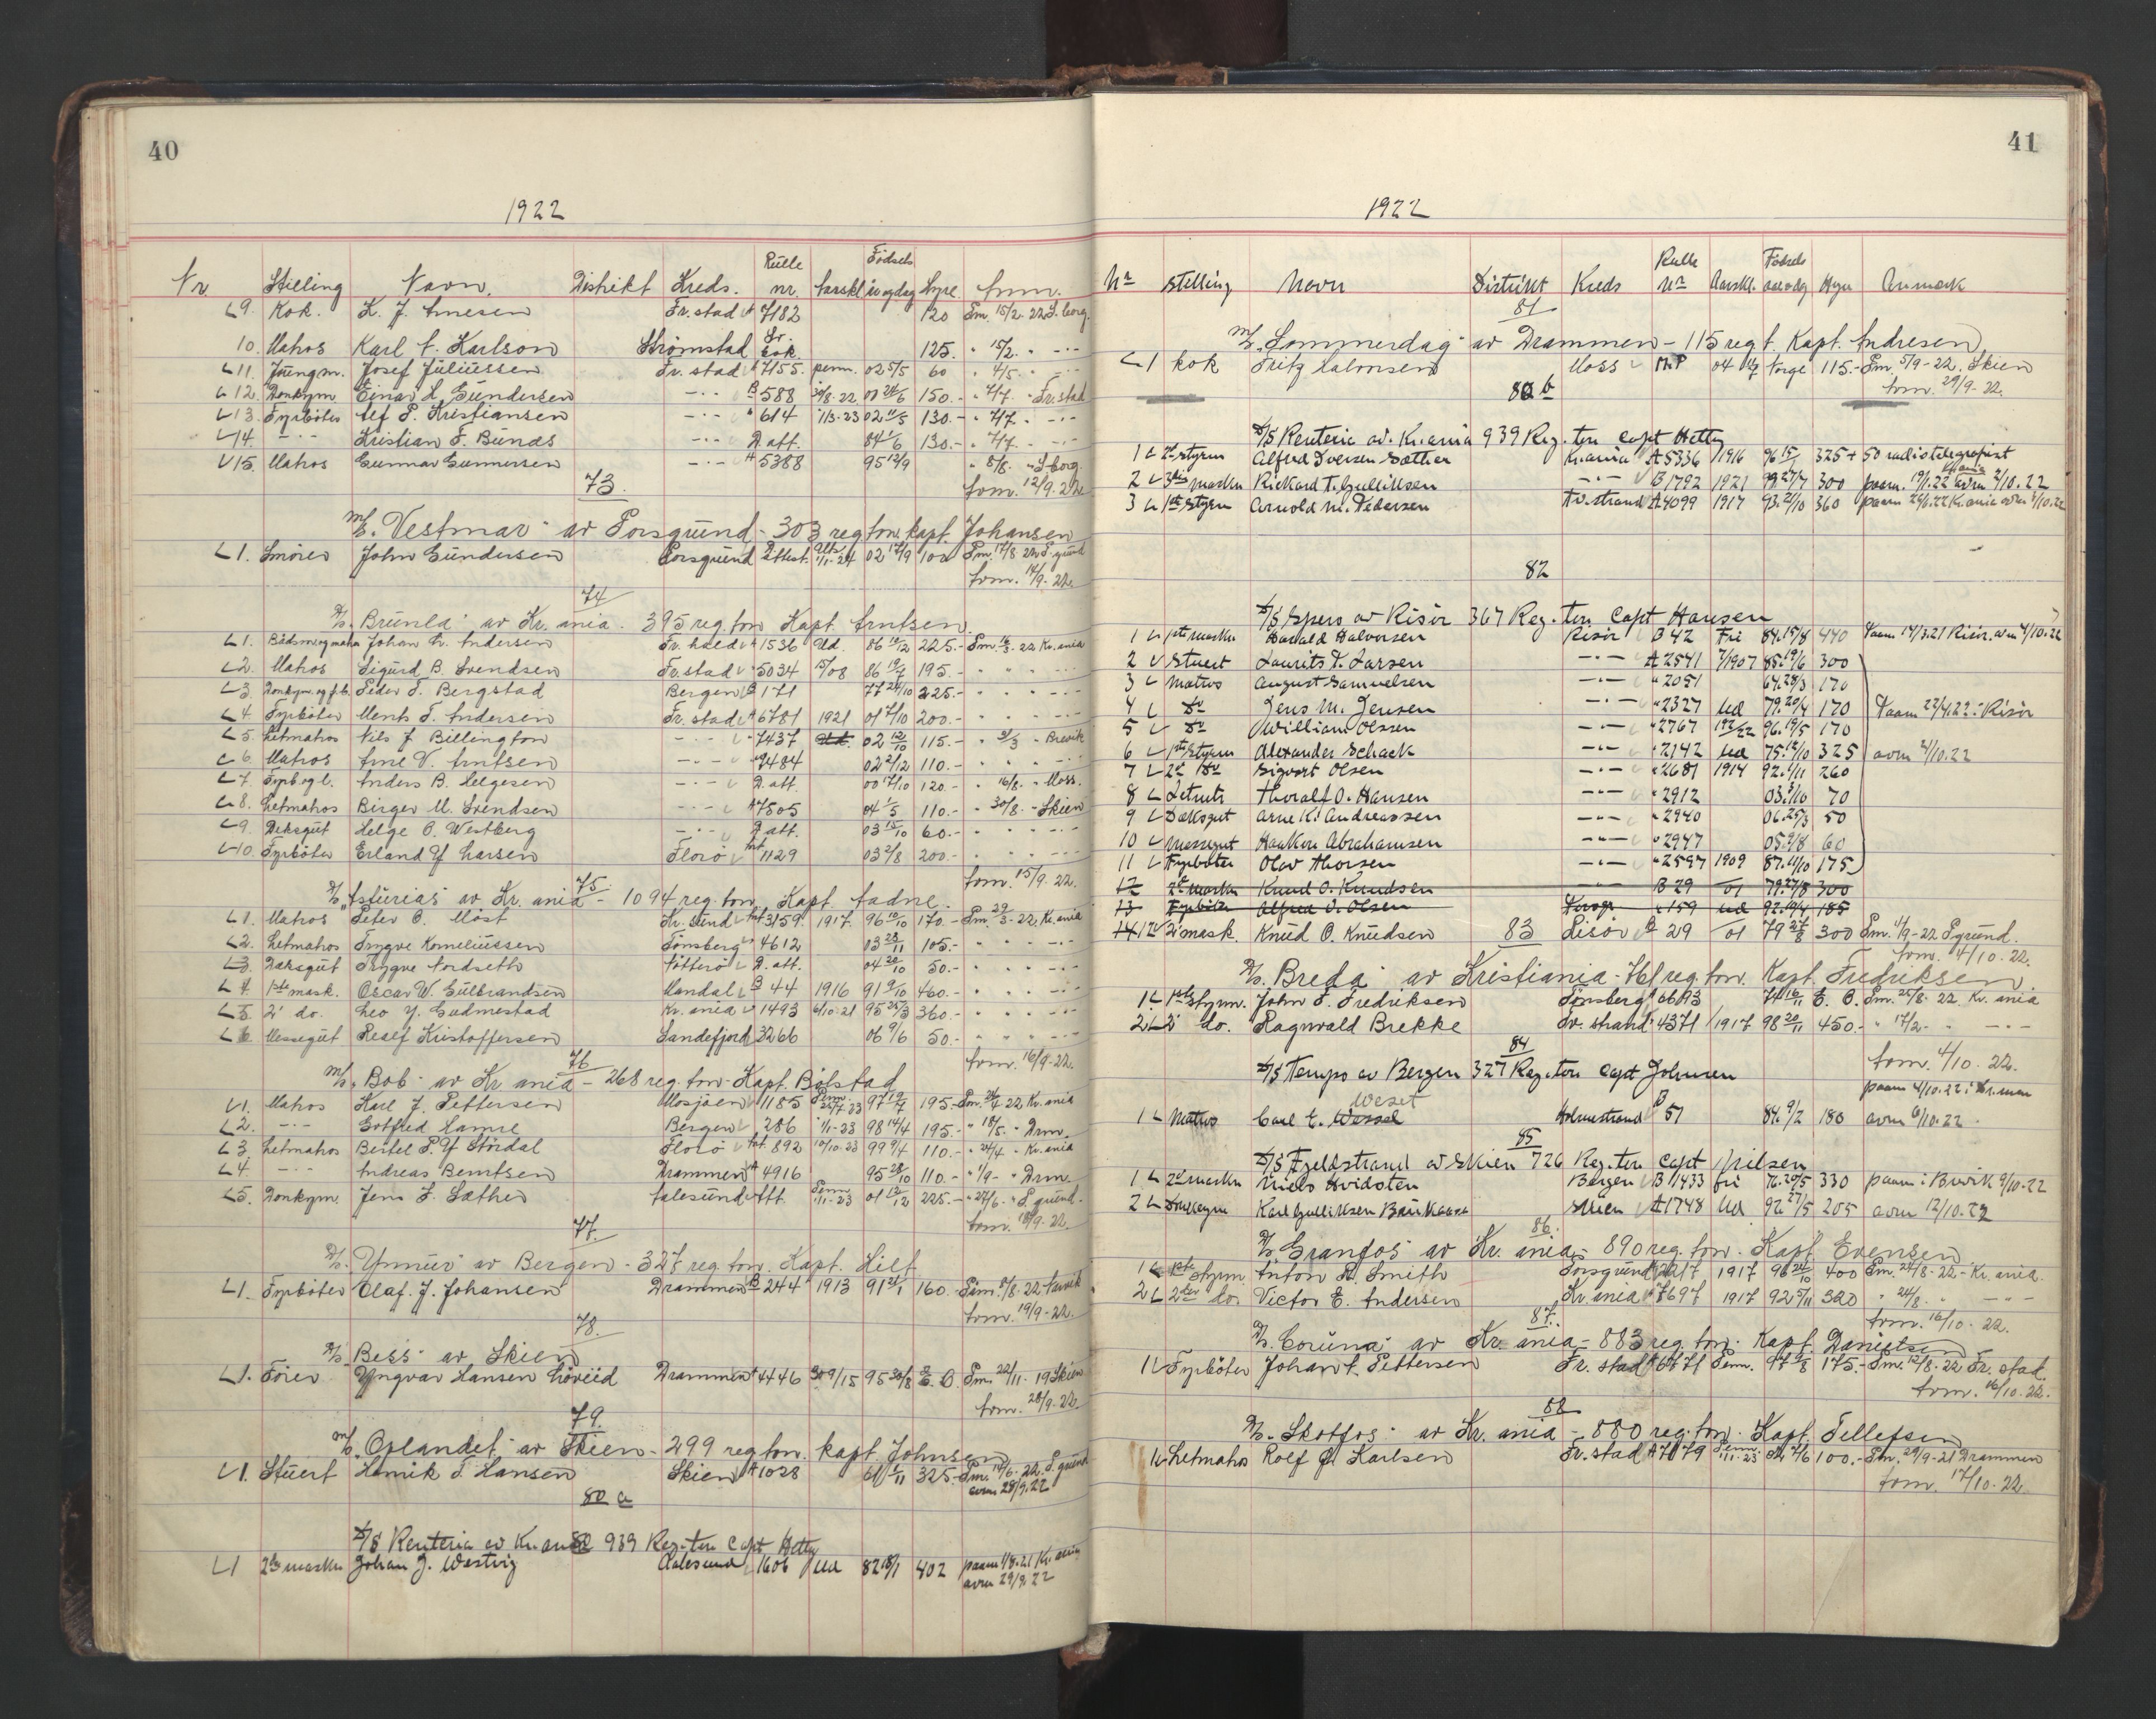 40
1922
Nr. Stilling Navn. Distrikt Kreds. Rulle nr. Aarskl. Fødsels aar og dag Hyre Anm.
9. Kok. K. J. Arnesen Fr.stad A 7182 120 Pm. 15/2. 22 S.borg.
10. Matros Karl A. Karlson Strømstad Sv. bok. 125. " 15/2. " -"-
11. Jüngm. Josef Jüliüssen Fr.stad A 7155. perm. 02 5/5 60 " 4/5. " -"-
12. Donkym Einar L. Gündersen -"- B 588 30/8-22 00 24/6 150.- " 4/7. " Fr.stad
13. Fyrbøter Alf P. Kristiansen -"- " 614 1/3-23 02 11/5 130.- " 4/7. " -"-
14. -"- Kristian F. Bünds -"- D. att. 84 1/6 130.- " 4/7. " -"-
15. Matros Gunnar Gunnersen -"- A 5388 95 12/9 " 8/8. " S.borg.
73. fvm. 12/9.22
M/S. "Vestmar" av Porsgründ - 303 reg. ton kapt. Johansen
1. Smører John Gündersen Porsgründ Attest. Utsk. 1/1-24 02 17/9 100 Pm. 17/8 22 P.gründ
fvm. 14/9-22.
74
D/S. "Brünla" av Kr.ania - 395 reg. ton Kapt. Arntsen
1. Båtsm og matr Johan Kr. Andersen Fr.hald A 1536 Ud. 86 12/12 225.- Pm. 16/3-22 Kr.ania
2. Matros Sigurd B. Svendsen Fr.stad " 5034 15/08 86 19/7 195.- " " " -"-
3. Donkym. og f.b. Peder T. Bergstad Bergen B 171 77 24/10 225.- " " " -"-
4. Fyrbøter Ments F. Andersen Fr.stad A 6781 1921 01 7/10 200.- " " " -"-
5. Letmatros Nils J Billington -"- " 7437 02 12/10 115.- " 31/3 " Brevik
6. Matros Arne V. Arntsen -"- " 7484 02 2/12 110.- " " " -"-
7. Fyrb og l. Anders B. Helgesen -"- D. att. 00 17/10 120.- " 16/8. " Moss.
8. Letmatros Birger M. Svendsen -"- A 7505 04 1/5 110.- " 30/8. " Skien
9. Deksgüt Helge O. Westberg -"- D. att. 03 15/10 60.- " " " -"-
10. Fyrbøter Erland Y. Larsen Florø 1129 03 2/8 200.- " " " -"-
75. fvm. 15/9.22.
D/S. "Astürias" av Kr.ania - 1094 reg. ton. Kapt. Aadne.
1. Matros Peter O. Møst Kr.sünd 3159. 1917. 96 10/10 170.- Pm. 29/3-22. Kr.ania
2. Letmatros Trygve Korneliüssen Tønsberg " 4612 03 28/11 105.- " " " -"-
3. Deksgüt Trygve Nordseth Nøtterø D. att. 04 20/10 50.- " " " -"-
4. 1ste mask. Oscar W. Gülbrandsen Mandal B 44 1916 91 9/10 460.- " " " -"-
5. 2' do. Leo Y. Gudmestad Kr.ania " 1493 6/10-21 95 25/3 360.- " " " -"-
6. Messegüt Realf Kristoffersen Sandefjord 3266 06 9/6 50.- " " " -"-
76 fvm. 16/9-22.
M/S. "Bob" av Kr.ania - 268 reg. ton - Kapt. Bølstad
1. Matros Karl J. Pettersen Mosjøen " 1185 Perm. 22/7-23 97 19/7 195.- Pm. 24/4 22 Kr.ania
2. -"- Gotfred Hamre Bergen " 286 1/1-23 98 14/4 195.- " 18/5. " Drm.
3. Letmatros Bertel P. Y Stördal Florø 892 10/10-23 99 9/4 110.- " 24/4 " Kr.ania
4. -"- Andreas Berntsen Drammen A 4916 95 28/10 110.- " 1/9 - " Drm.
5. Donkym. Jens L. Sæther Aalesünd Att. Perm. 1/1-23 01 12/12 225.- " 27/6. " P.gründ.
77. fvm. 18/9.22
D/S. "Ymnür" av Bergen - 327 reg. ton. Kapt. Lilt
1. Fyrbøter Olaf. J. Johansen Drammen B 244 1913 91 21/1 160. Pm. 8/8. 22 Larvik
fvm. 19/9-22.
78.
D/S. "Bess" av Skien
1. Fører Yngvar Hansen Høviid Drammen A 4446 30 9/15 95 30/8 E. O. Pm. 22/11. 19 Skien
fvm. 28/9.22.
79.
M/S. "Oplandet" av Skien - 299 reg ton. kapt. Johnsen
1. Stüert Henrik F. Hansen Skien A 1028 61 1/11 325.- Pm. 14/6. 22. P.gründ
avm 28/9.22
80 a
D/S Renteria av Kr.ania 939 Reg. ton Capt Hetty
1 2den maskn Johan J. Westvig Aalesund 1606 Ud 82 18/1 402 paam 1/8.21 Kr.ania
avm 29/9.22
41
1922
Nr Stilling Navn Distrikt Kreds Rulle Nr Aarskl. Fødsels aar o dg Hyre Anmerk
81
M/S. "Sommerdag" av Drammen - 115 reg t. Kapt. Andresen
1 kok Fritz Halvorsen Moss 04 Norge 115.- Pm. 5/9-22. Skien
80 b fvm. 29/9-22.
D/S Renteria av. Kr.ania 939 Reg. ton Capt Hetty
1 2de styrm Alfred Iversen Sæther Kr.ania A 5336 1916 96 15/1 325 + 50 radiotelegrafist
2 3die maskn Rickard T. Gulliksen -"- B 1792 1921 99 27/7 300 paam. 19/1.22 Kr.ania avm 2/10.22
3 1ste styrm Arnold M. Pedersen Fr.strand A 4099 1917 93. 21/10 360 paam 26/6.22 Kr.ania avm 2/10.22
82
D/S Spero av Risør 367 Reg. ton Capt Hansen
1 1ste maskn Harald Halvorsen Risør B 42 Fri 84. 15/8 440 Paam 14/3.21 Risør. avm 4/10.22
2 Stuert Laurits T. Larsen -"- A 2541 7/1907 85. 19/6 300
3 Matros August Samuelsen -"- " 2051 64. 28/3 170
4 do Jens M. Jensen -"- " 2327 Ud 79. 20/4 170 Paam 22/4.22 i Risør
5 do William Olssen -"- " 2767 192/22 96. 19/5 170
6 1ste styrm Alexander Schack -"- " 2142 Ud 75. 12/10 325 avm 4/10.22
7 2de do Sigvart Olsen -"- " 2681 1914 92. 1/11 260
8 Letmatr Thoralf O. Hansen -"- " 2912 03. 3/10 70
9 Dæksgut Arne K. Andreassen -"- " 2940 06. 25/3 50
10 Messegut Haakon Abrahamsen -"- " 2947 05. 9/8 60
11 Fyrbøter Olav Thorsen -"- " 2597 1909 87. 11/10 175
12 2de maskn Knud O. Knudsen -"- B 29 01 79. 27/8 300
13 Fyrbøter Alfred O. Olsen " 159 Ud 92. 19/4 185
14 12 2' mask. Knüd O. Knüdsen 83 Risør B 29 01 79 27/8 300 Pm. 11/9-22 P.gründ.
fvm. 4/10.22.
D/S. "Breda" av Kristiania - 761 reg. ton. Kapt. Fredriksen
1. 1ste styrm. John F. Fredriksen Tønsberg 74 16/11 E. O. Pm. 25/8. 22. Kr.ania
2 2' do. Ragnvald Brekke Fr.strand " 4371 1917 98 20/11 450.- " 17/2. " -"-
84 fvm. 4/10. 22.
D/S Tempo av Bergen 327 Reg. ton Capt Johnsen
paam 4/10.22 i
Weset
1 Matros Carl E. Wessel Holmestrand B 51 84. 9/2 180 avm 6/10.22
85
D/S Fjeldstrand av Skien 726 Reg. ton Capt Nilsen
1 2de maskn Niels Hvidsten Bergen B 1433 fri 76. 20/5 330 paam i Brevik 9/10.22
2 Karl Gulliksen Skien A 1748 Ud 92 27/5 205 avm 12/10.22
86.
D/S. "Granfos" av Kr.ania - 890 reg. ton. Kapt. Evensen
1 1ste styrm. Anton R. Smith Porsgründ 1917 96 21/10 400 Pm. 24/8-22 - Kr.ania.
2 2den do. Victor E. Andersen Kr.ania A 7697 1917 92 5/11 320 " 24/8. " -"-
87. fvm. 16/10-22.
D/S. "Corüna" av Kr.ania - 883 reg. ton. Kapt. Danielsen
1 Fyrbøter Johan A. Pettersen Fr.stad A 6771 Perm. 97 9/8 175.- Pm. 12/8-22 Fr.stad.
fvm. 16/10-22.
88
D/S. "Skotfos" av Kr.ania - 880 reg. ton. Kapt. Tellefsen
1 Letmatros Rolf G. Karlsen Fr.stad A 7079 Perm. 1/1-23 02 2/6 100.- Pm. 29/9-21 Drammen
fvm. 17/10-22.